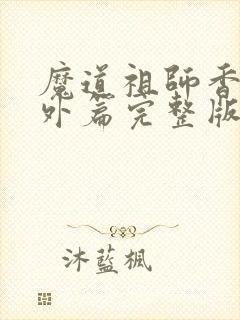 魔道祖師香
外篇完整版
沐藍楓